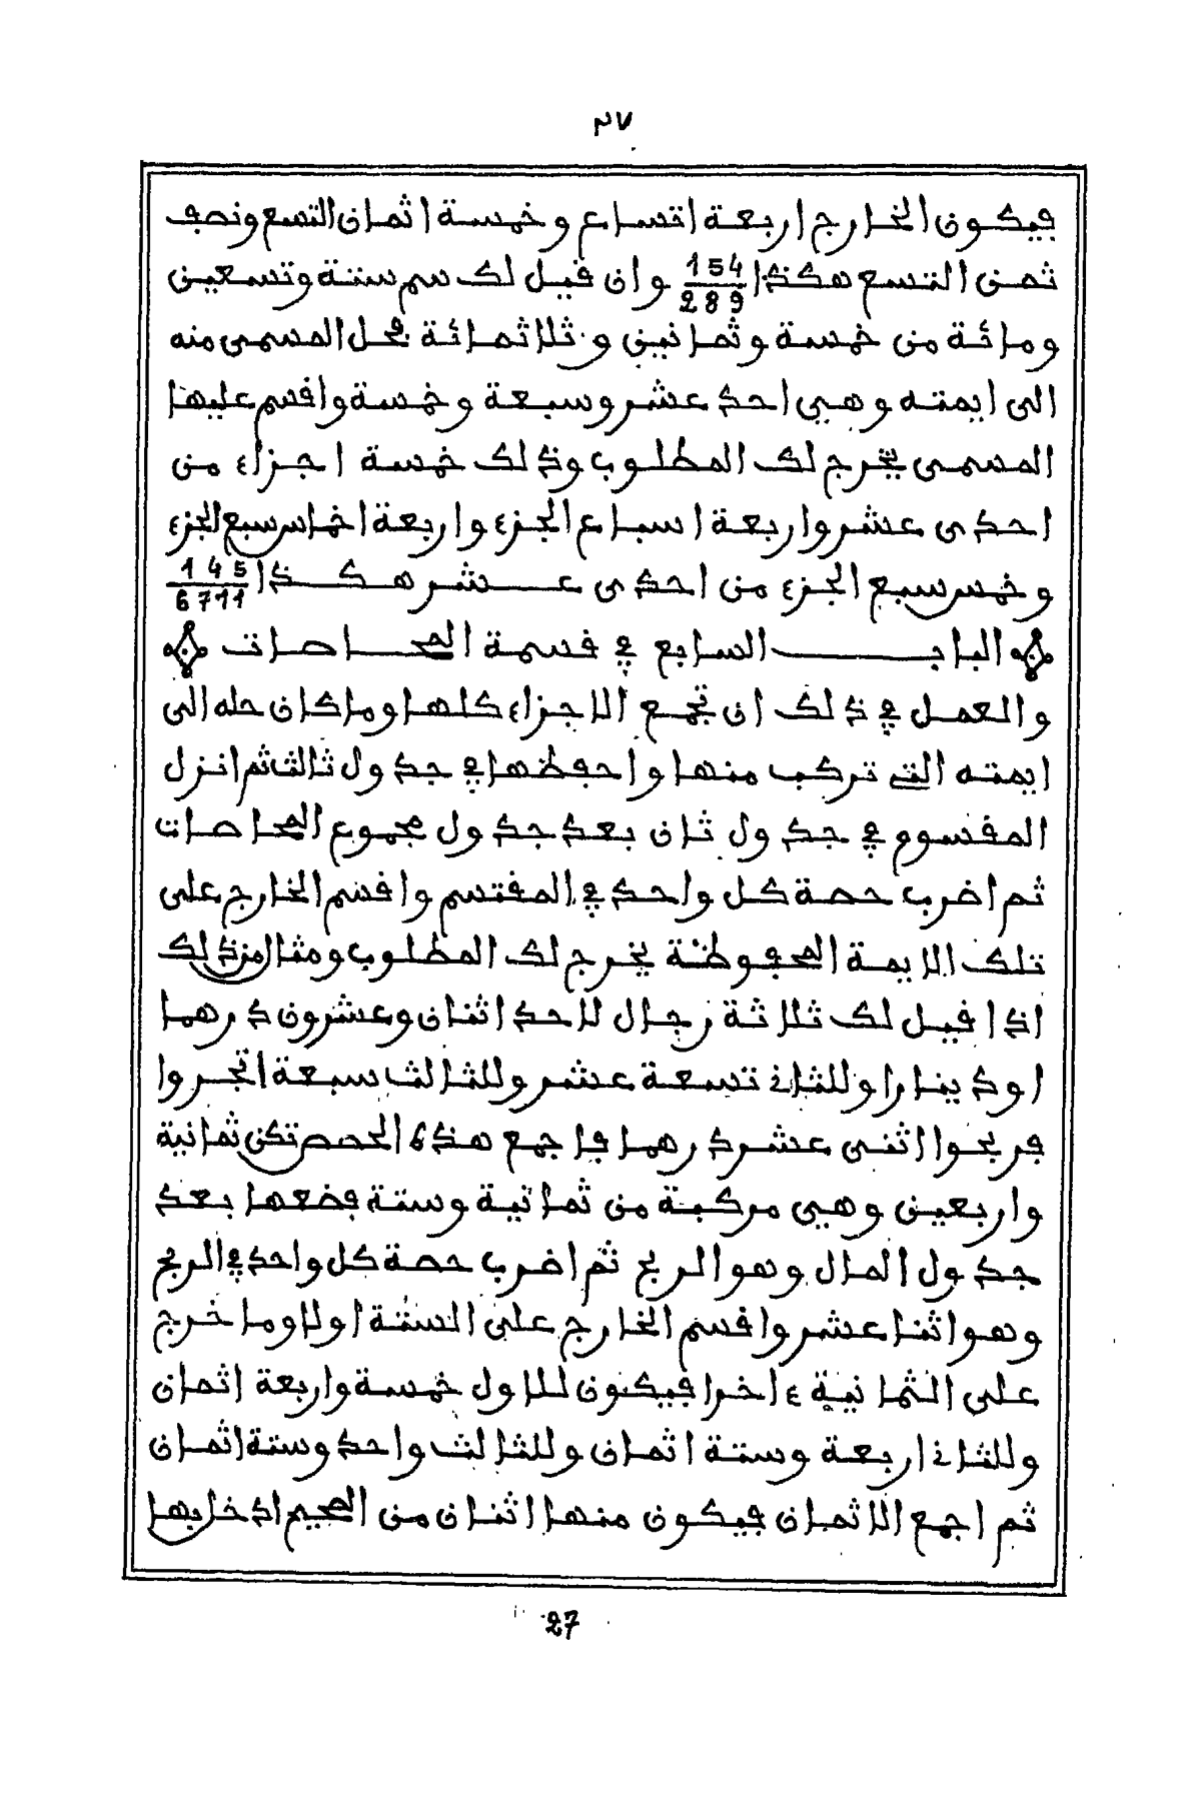 ٢٧
فيكون الخارج اربعة اتساع وخمسة اثمان التسع ونصف
ثمن التسع هكذا 154/289 وان قيل لك سم ستة وتسعين
ومائة من خمسة وثمانين وثلاثمائة فحل المسمى منه
الى ايمته وهي احد عشر وسبعة وخمسة واقسم عليها
المسمى يخرج لك المطلوب وذلك خمسة اجزاء من
احدى عشر واربعة اسباع الجزء واربعة اخماس سبع الجزء
وخمس سبع الجزء من احدى عشر هكذا 145/6711
الباب السابع في قسمة المحاصات
والعمل في ذلك ان تجمع الاجزاء كلها وما كان حله الى
ايمته التي تركب منها واحفظها في جدول ثالث ثم انزل
المقسوم في جدول ثان بعد جدول مجموع المحاصات
ثم اضرب حصة كل واحد في المقتسم واقسم الخارج على
تلك الايمة المحفوظة يخرج لك المطلوب ومثال من ذلك
اذا قيل لك ثلاثة رجال لاحد اثنان وعشرون درهما
او دينارا وللثاني تسعة عشر وللثالث سبعة اتجروا
فربحوا اثنى عشر درهما فاجمع هذه الحصص تكن ثمانية
واربعين وهي مركبة من ثمانية وستة فضعها بعد
جدول المال وهو الربح ثم اضرب حصة كل واحد في الربح
وهو اثنا عشر واقسم الخارج على الستة اولا وما خرج
على الثمانية ءاخرا فيكون للاول خمسة واربعة اثمان
وللثاني اربعة وستة اثمان وللثالث واحد وستة اثمان
ثم اجمع الاثمان فيكون منها اثنان من الصحيح ادخل بها
27